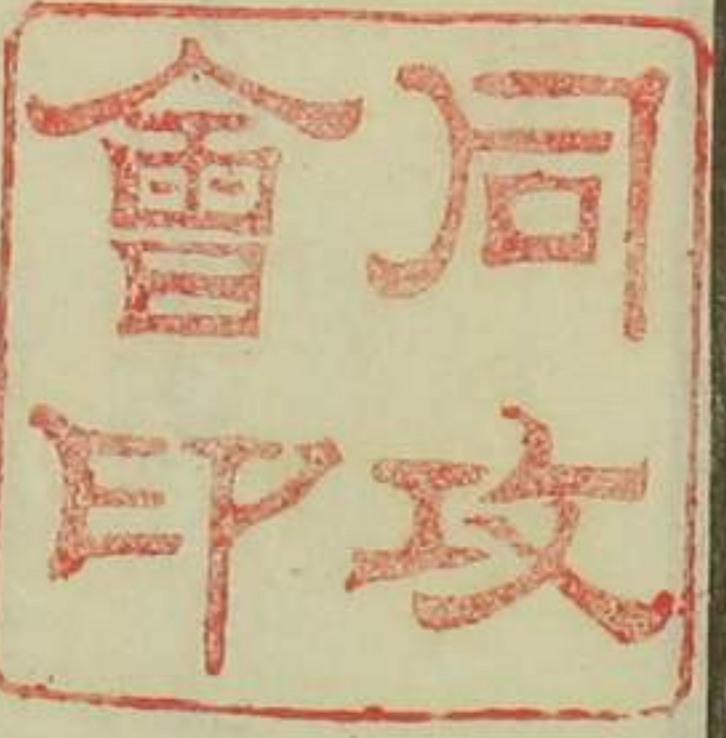 同攻
會印